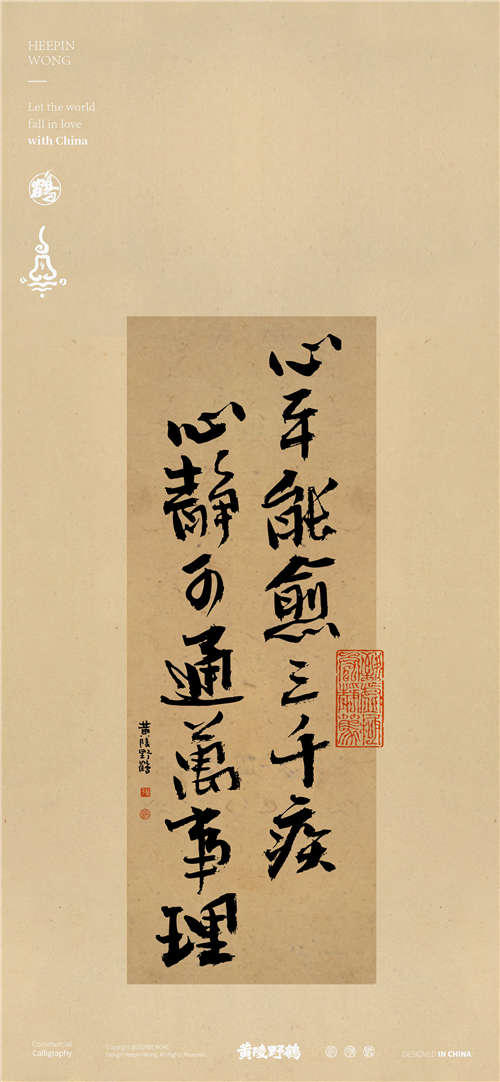 HEEPIN
WONG
Let the world
fall in love
with China
鶴
心平能愈三千疾
心靜可通萬事理
黃陵野鶴
Commercial
Calligraphy
黃陵野鶴
DESIGNED IN CHINA